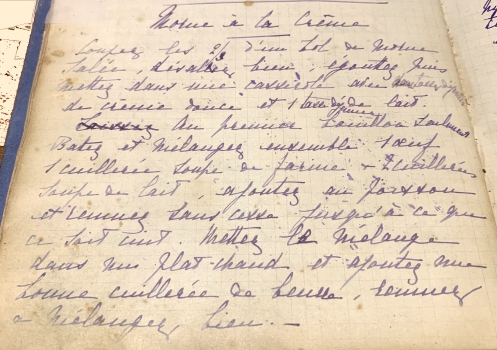 Morue à la Crème
Coupez les 2/3 d'un lot de Morue
Salée, désalez bien, égouttez puis
mettez dans une casserole avec
de crème douce et 1 tasse de lait
Au premier bouillon seulement
Battez et mélangez ensemble 1 œuf
1 cuillerée soupe de farine + 2 cuillerées
soupe de lait, ajoutez au poisson
et remuez sans cesse jusqu'à ce que
ce soit cuit. Mettez le Mélange
dans un plat chaud et ajoutez une
bonne cuillerée de beurre, remuez
à Mélangez bien. —